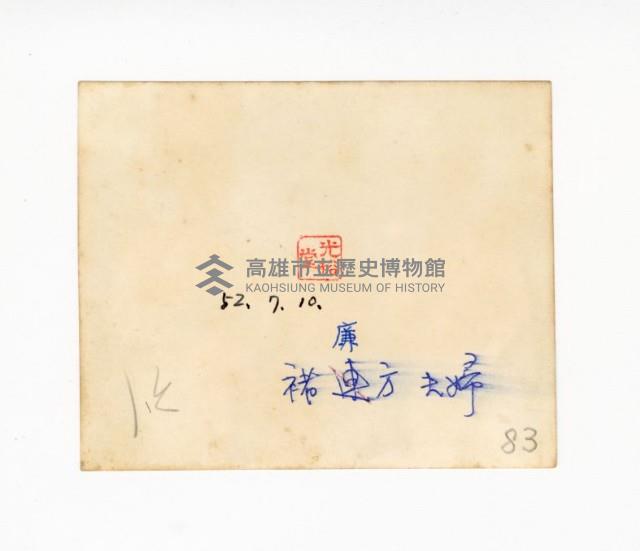 高雄市立歷史博物館
KAOHSIUNG MUSEUM OF HISTORY
52. 7. 10.
廉
褚連方夫婦
83